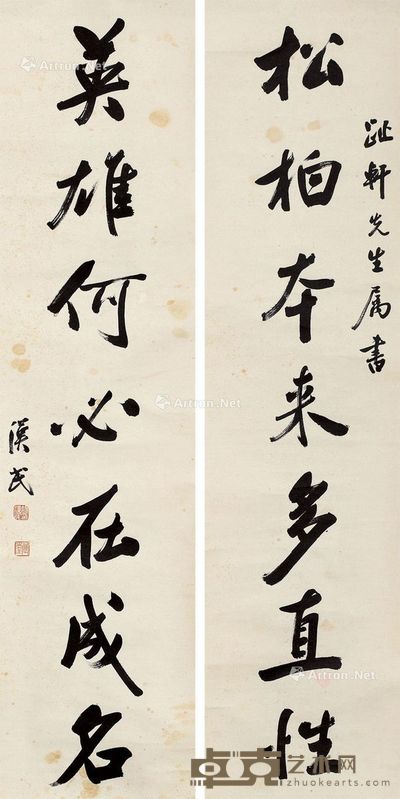 趾軒先生属書
松柏本来多直性
英雄何必在成名
漢民
Artron.Net
Artron.Net
Artron.Net
Artron.Net
卓克艺术网
zhuokearts.com